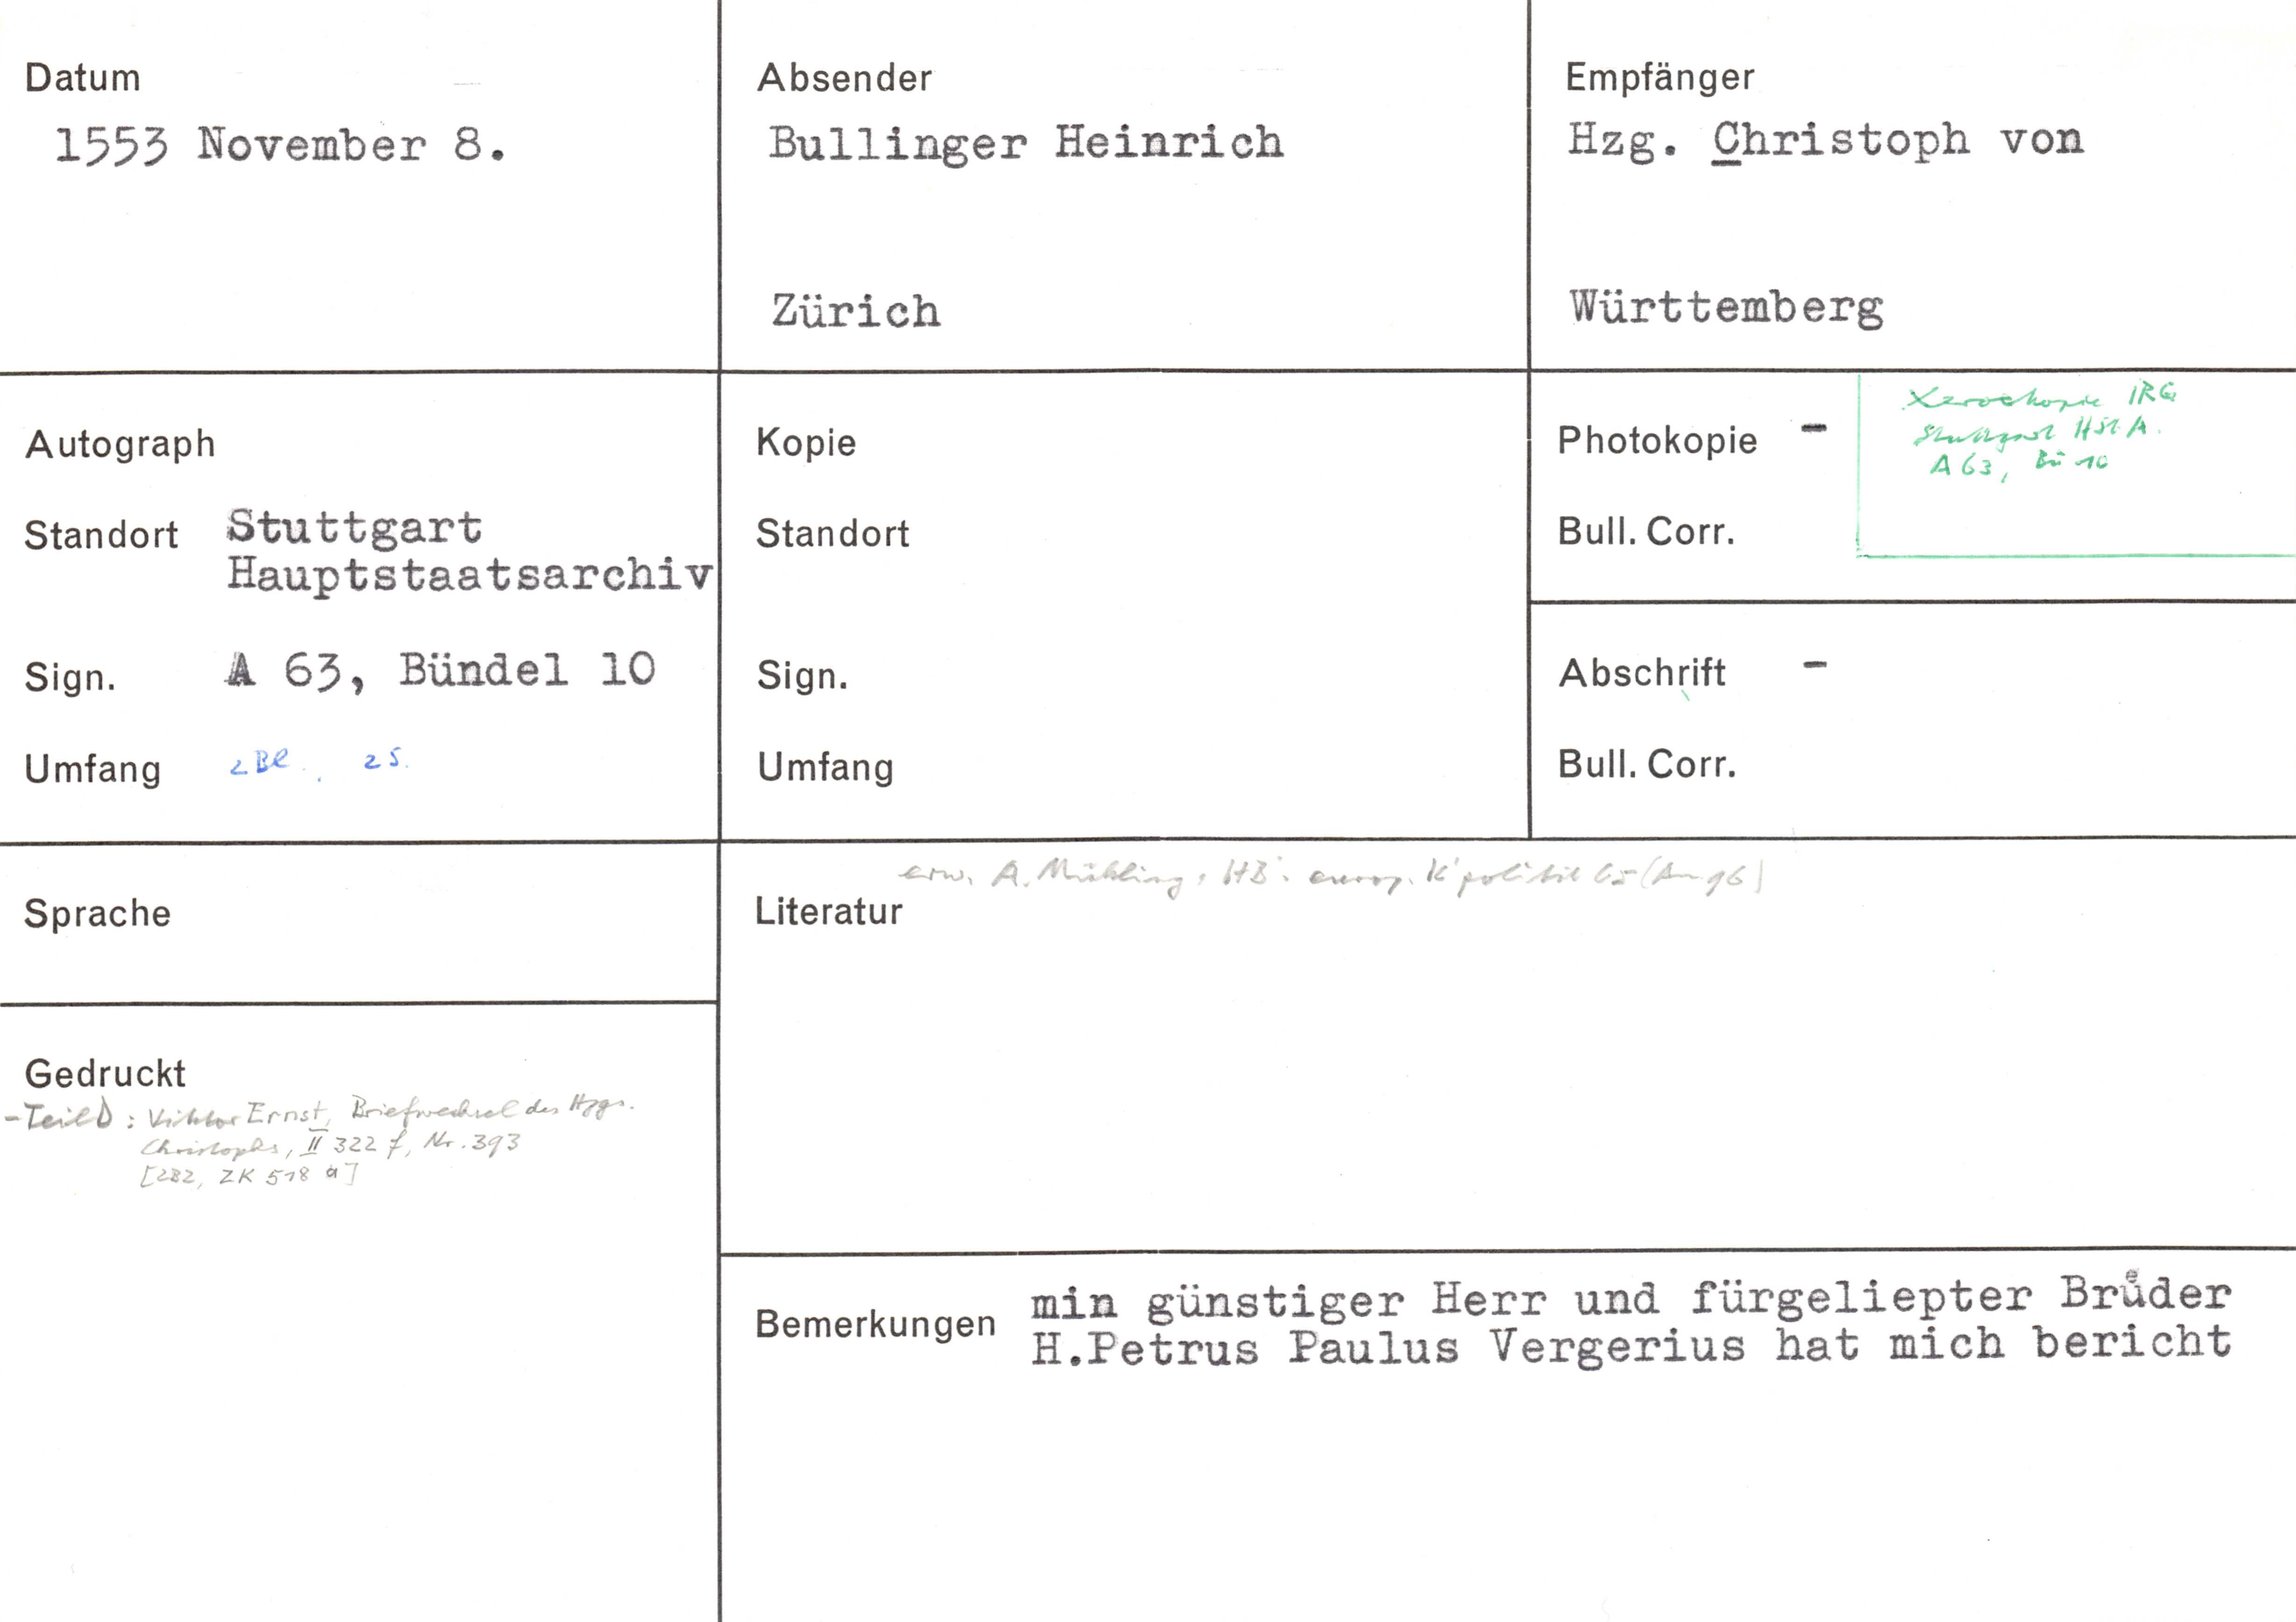 Datum
1553 November 8.
Absender
Bullinger Heinrich
Zürich
Empfänger
Hzg. Christoph von
Württemberg
Autograph
Standort Stuttgart
Hauptstaatsarchiv
Sign. A 63, Bündel 10
Umfang 2 Bl., 2 S.
Kopie
Standort
Sign.
Umfang
Photokopie -
Bull. Corr.
Xerokopie IRG
Stuttgart HStA.
A 63, Bü 10
Abschrift -
Bull. Corr.
Sprache
Gedruckt
-Teild: Viktor Ernst, Briefwechsel des Hzgs.
Christophs, II 322 f, Nr. 393
[282, ZK 518 a]
erw. A. Mühling, HB's europ. K'politik 65 (Am 96)
Literatur
Bemerkungen min günstiger Herr und fürgeliepter Brůder
H.Petrus Paulus Vergerius hat mich bericht